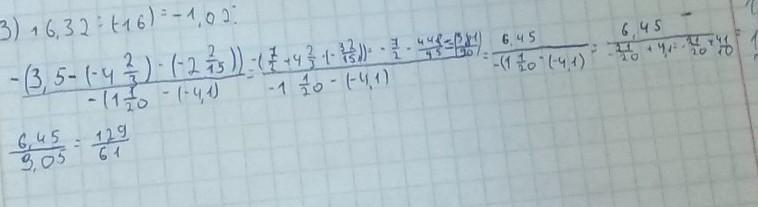 3) 16,32 : (-16) = -1,02.
-(3,5-(-4 2/3) · (-2 2/15)) / -(1 1/20 - (-4,1) = -(7/2 + 4 2/3 · (-32/15)) = -7/2 - 448/45 = / -1 1/20 - (-4,1) = 6,45 / -(1 1/20 - (-4,1) = 6,45 / -21/20 + 4,1 = -21/20 + 41/10 =
6,45/3,05 = 129/61